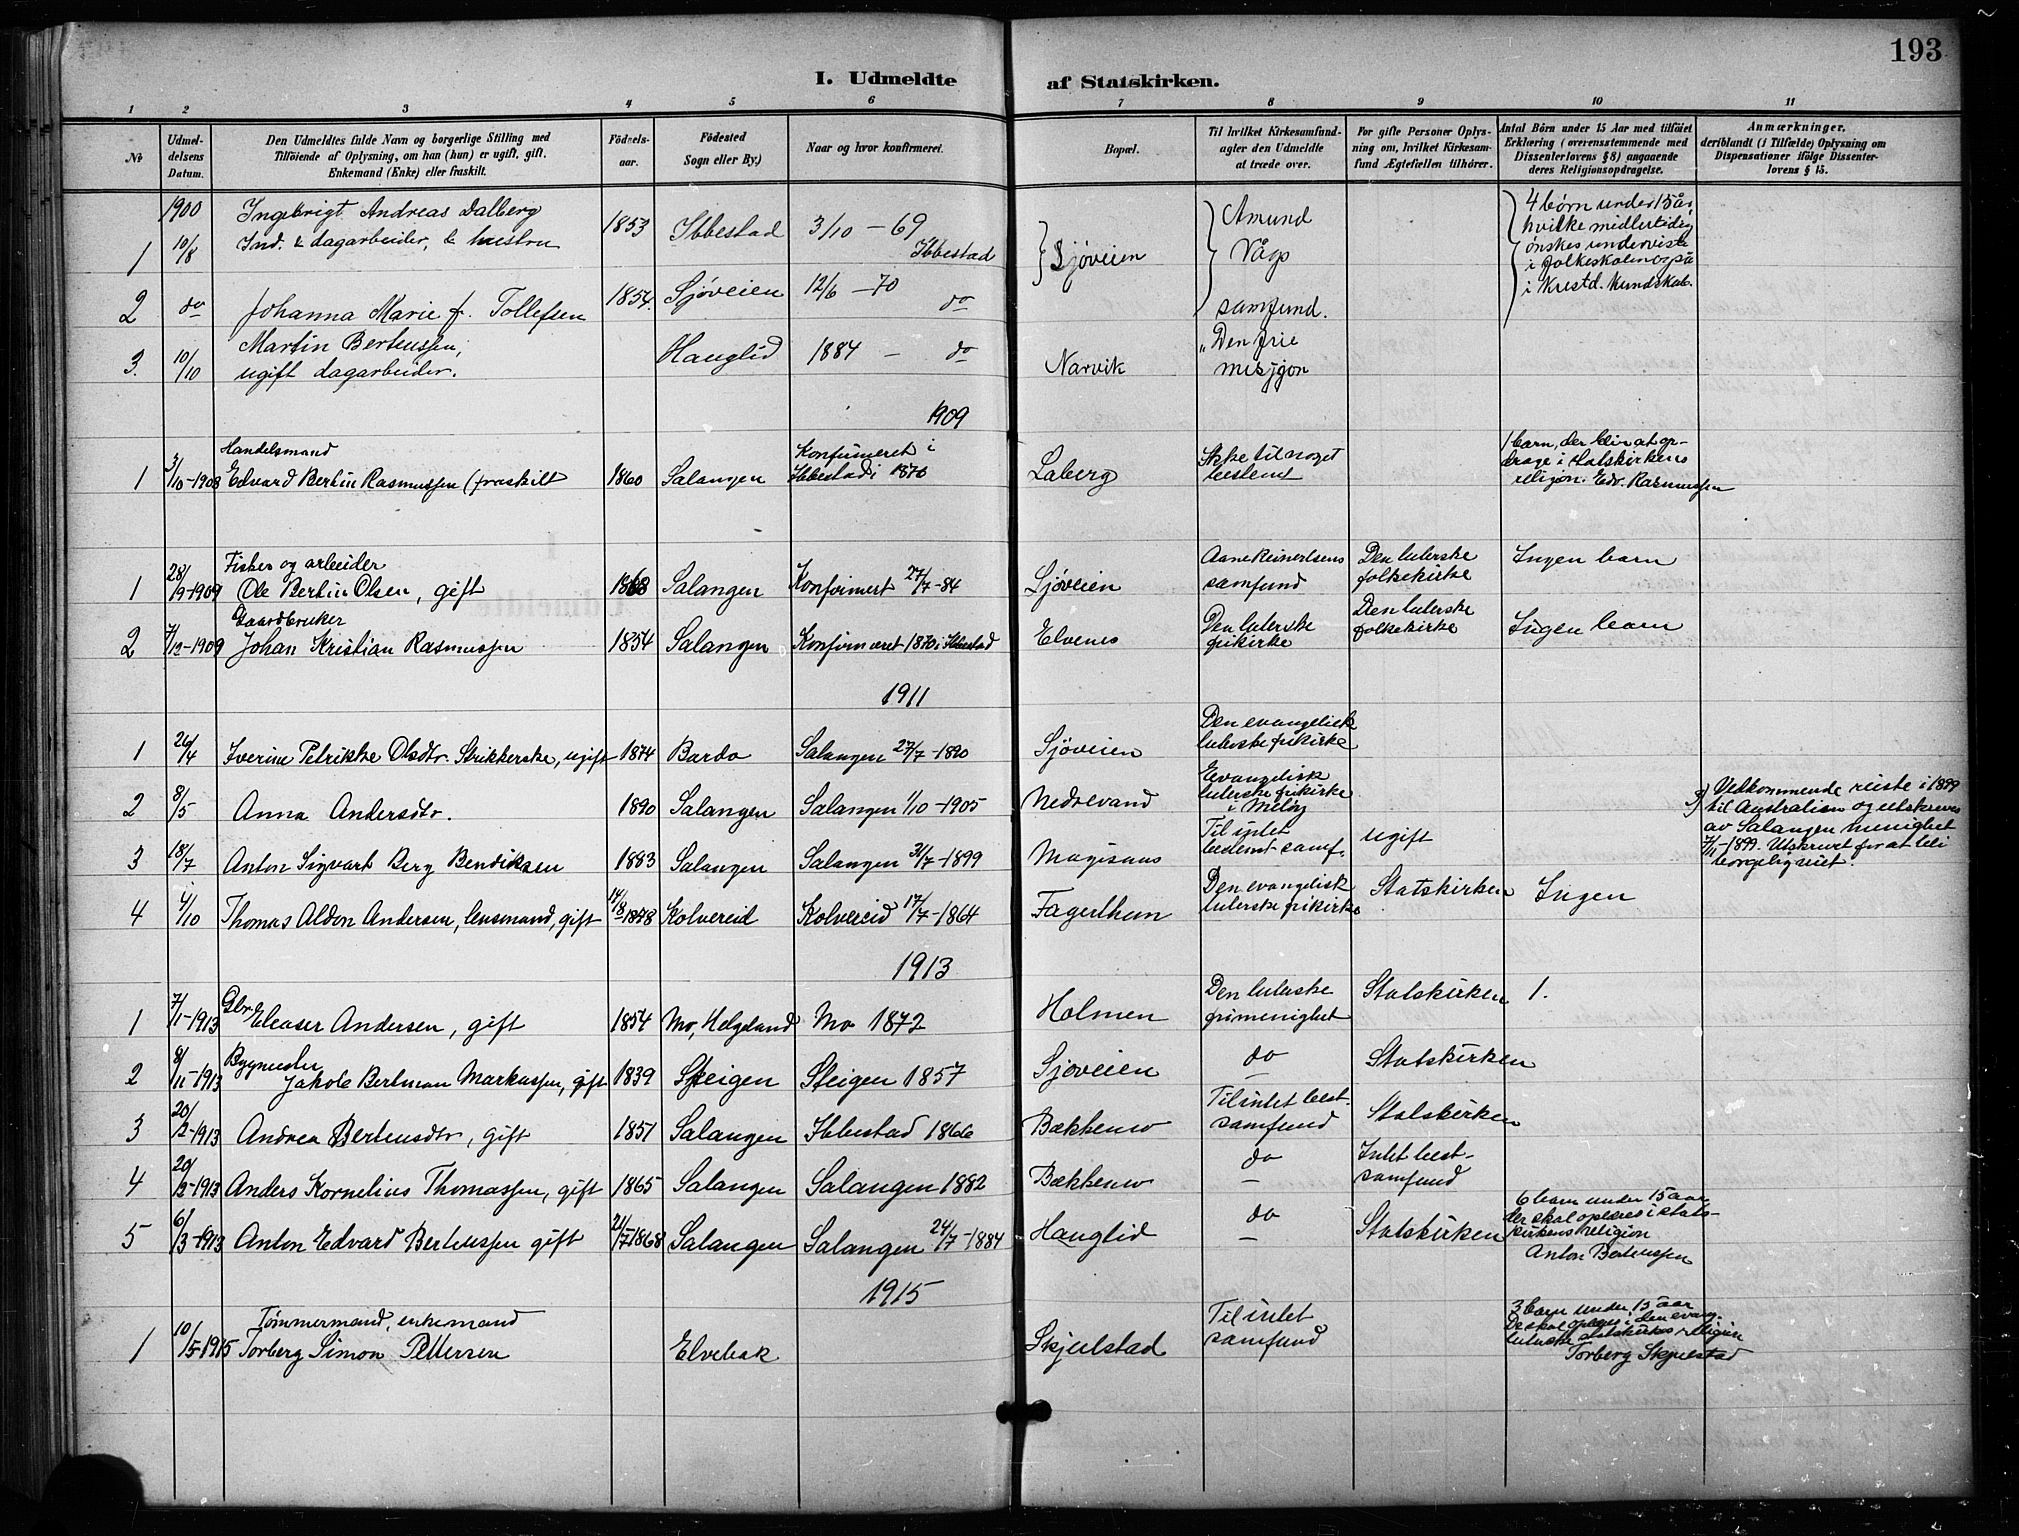 193
I. Udmeldte af Statskirken.
1 2 3 4 5 6 7 8 9 10 11
No
Udmel-
delsens
Datum.
Den Udmeldtes fulde Navn og borgerlige Stilling med
Tilföiende af Oplysning, om han (hun) er ugift, gift,
Enkemand (Enke) eller fraskilt.
Födsels-
aar.
Födested
Sogn eller By.)
Naar og hvor konfirmeret.
Bopæl.
Til hvilket Kirkesamfund-
agter den Udmeldte
at træde over.
For gifte Personer Oplys-
ning om, hvilket Kirkesam-
fund Ægtefællen tilhörer.
Antal Börn under 15 Aar med tilföiet
Erklæring (overensstemmende med
Dissenterlovens § 8) angaaende
deres Religionsopdragelse.
Anmærkninger,
deriblandt (i Tilfælde) Oplysning om
Dispensationer ifölge Dissenter-
lovens § 15.
1900
1 10/8 Ingebrigt Andreas Dalberg
Ind. & dagarbeider, & hustru
1853 Ibbestad 3/10 - 69
Ibbestad
Sjøveien
Amund
Vågs
samfund.
4 børn under 15 år,
hvilke midlertidig
ønskes underviste
i folkeskolen også
i Kristd. Kundskab.
2 do Johanna Marie f. Tollefsen 1854. Sjøveien 12/6 - 70 do
3. 10/10 Martin Berteussen,
ugift dagarbeider.
Hauglid 1884 - do Narvik
"Den frie
misjon
1909
1 3/10-1908 Handelsmand
Edvard Bertin Rasmussen (fraskilt 1860 Salangen
Konfirmeret i
Ibbestad i 1876
Laberg
Ikke til noget
bestemt
1 barn, der blir at op-
drage i statskirkens
religion. Edv. Rasmussen
1 28/9-1909 Fisker og arbeider
Ole Bertin Olsen, gift 1868 Salangen Konfirmert 27/7-84 Sjøveien
Aane Reinertsens
samfund
Den luterske
folkekirke
Ingen barn
2 7/12-1909 Gaardbruker
Johan Kristian Rasmussen 1854 Salangen Konfirmeret 1870 i Ibbestad Elvenes
Den luterske
frikirke
Den luterske
folkekirke
Ingen barn
1911
1 26/4 Iverine Petrikke Olsdtr. Strikkerske, ugift 1874 Bardo Salangen 27/7-1890 Sjøveien
Den evangelisk
luterske frikirke
2 8/5 Anna Andersdtr. 1890 Salangen Salangen 1/10-1905 Nedrevand
Evangelisk
luterske frikirke
i Meløy
3 18/7 Anton Sigvart Berg Bendiksen 1883 Salangen Salangen 31/7-1899
Til intet
bestemt samf.
ugift
3) Vedkommende reiste i 1899
til Australien og utskreves
av Salangen menighet
7/11-1899. Utskrevet for at bli
borgerlig viet.
4 4/10 Thomas Aldon Andersen, lensmand, gift Kolvereid Kolvereid 17/7-1864 Fagerthun
Den evangelisk
luterske frikirke
Statskirken Ingen
1913
1 7/1-1913 Gbr
Eleaser Andersen, gift 1854 Mo, Helgeland Mo 1872 Holmen
Den luterske
frimenighet
Statskirken 1.
2 8/11-1913 Bygmester
Jakob Bertman Markussen, gift 1839 Steigen Steigen 1857 Sjøveien do Statskirken
3 20/2-1913 Andrea Berteusdtr, gift 1851 Salangen Ibbestad 1866 Bækkemo
Til intet best.
samfund
Statskirken
4 20/2-1913 Anders Kornelius Thomassen, gift 1865 Salangen Salangen 1882 Bækkemo do
Intet best-
samfund
5 6/3-1913 Anton Edvard Berteussen gift 21/7-1868 Salangen Salangen 24/7-1884 Hauglid do Statskirken
6 barn under 15 aar
der skal oplæres i stats-
kirkens religion
Anton Berteussen
1915
1 10/5-1915 Tømmermand, enkemand
Torberg Simon Pettersen Elvebak Skjelstad
Til intet
samfund
3 barn under 15 aar
De skal oplæres i den evang.
luterske statskirkes religion
Torberg Skjelstad